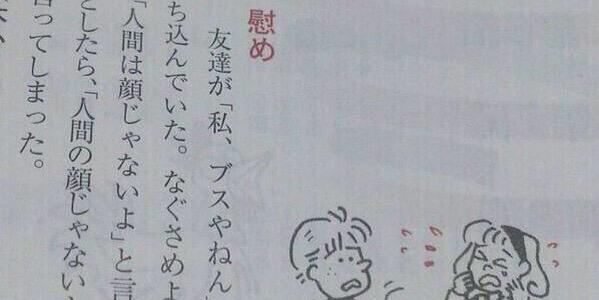 慰め
友達が「私、ブスやねん」
ち込んでいた。なぐさめよ
「人間は顔じゃないよ」と言
としたら、「人間の顔じゃない
言ってしまった。